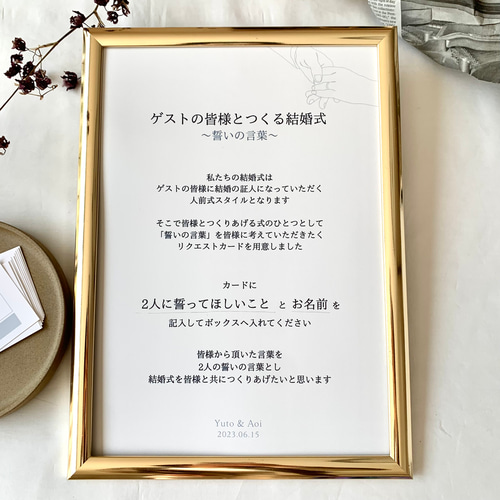 ゲストの皆様とつくる結婚式
〜誓いの言葉〜
私たちの結婚式は
ゲストの皆様に結婚の証人になっていただく
人前式スタイルとなります
そこで皆様とつくりあげる式のひとつとして
「誓いの言葉」を皆様に考えていただきたく
リクエストカードを用意しました
カードに
2人に誓ってほしいこと と お名前 を
記入してボックスへ入れてください
皆様から頂いた言葉を
2人の誓いの言葉とし
結婚式を皆様と共につくりあげたいと思います
Yuto & Aoi
2023.06.15